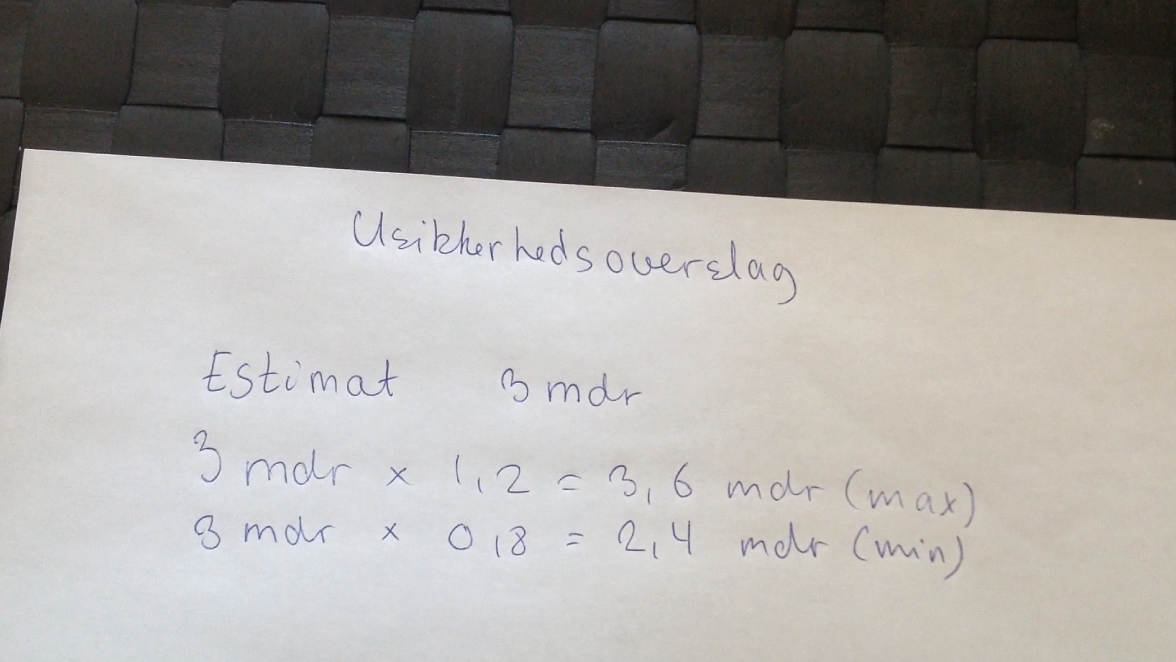 Usikkerhedsoverslag
Estimat 3 mdr
3 mdr x 1,2 = 3,6 mdr (max)
3 mdr x 0,8 = 2,4 mdr (min)